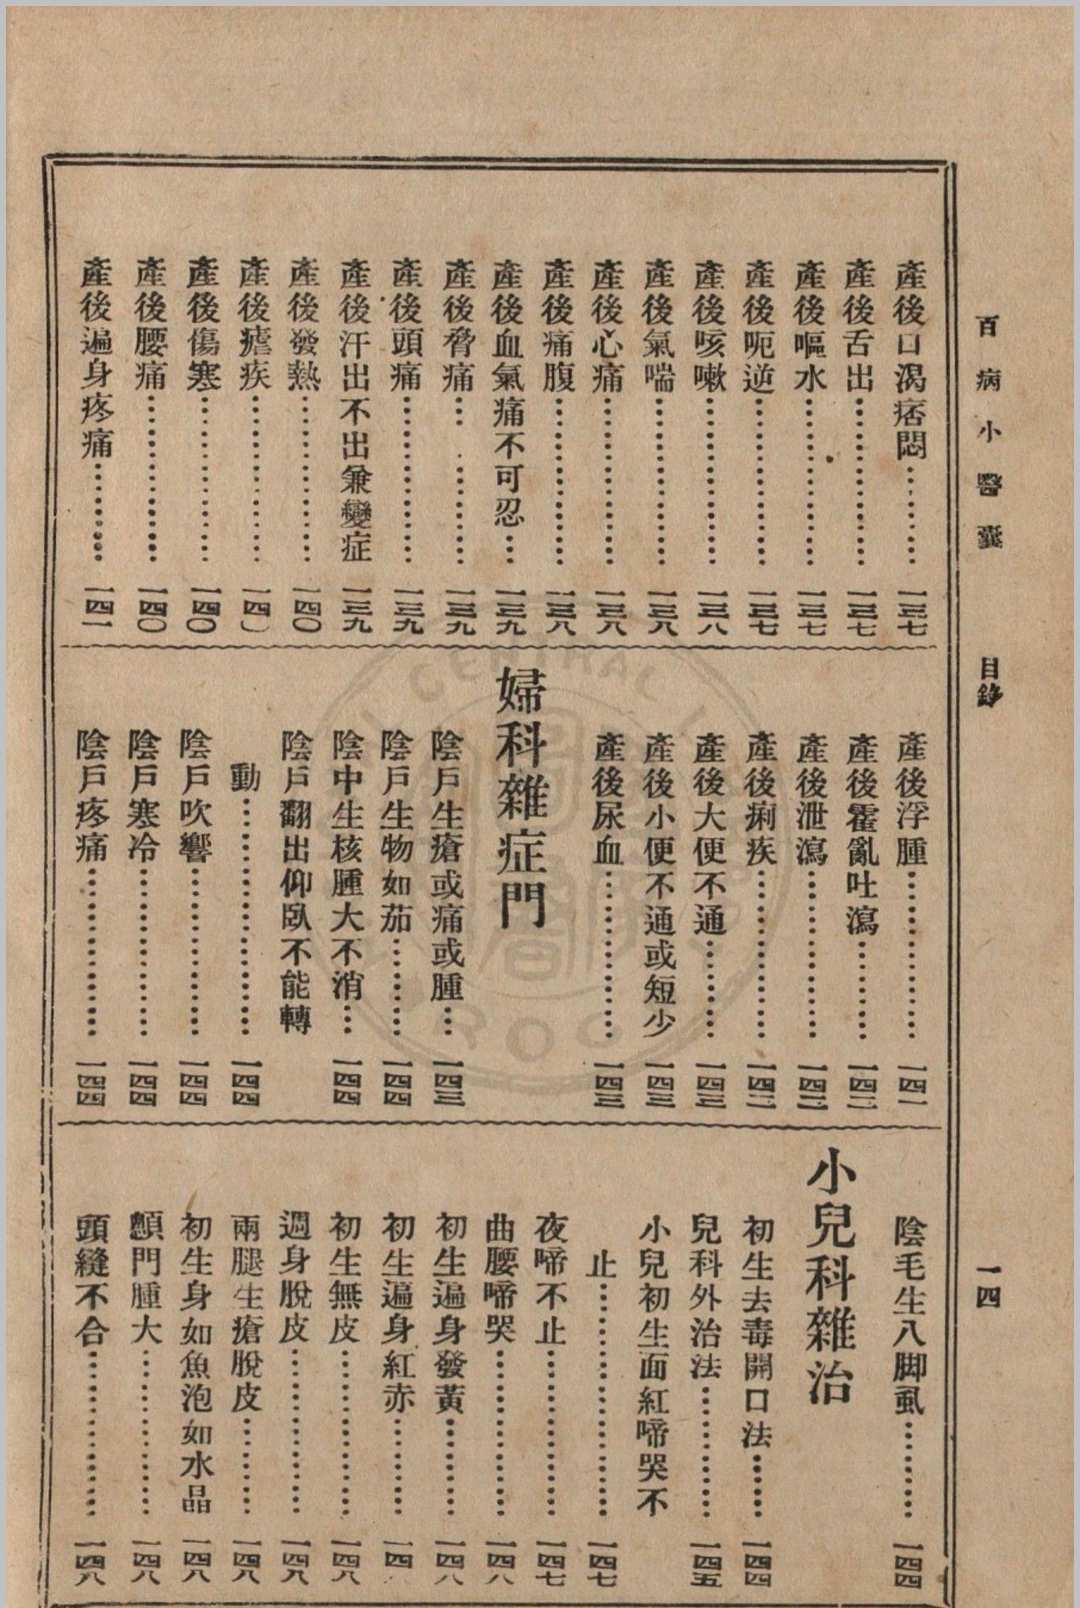 百病小醫囊 目錄 一四
產後口渴痞悶…………一三七
產後舌出…………一三七
產後嘔水…………一三七
產後呃逆…………一三七
產後咳嗽…………一三八
產後氣喘…………一三八
產後心痛…………一三八
產後痛腹…………一三八
產後血氣痛不可忍…一三九
產後脅痛…………一三九
產後頭痛…………一三九
產後汗出不出兼變症一三九
產後發熱…………一四〇
產後瘧疾…………一四
產後傷寒…………一四〇
產後腰痛…………一四〇
產後遍身疼痛…………一四一
產後浮腫…………一四一
產後霍亂吐瀉…………一四二
產後泄瀉…………一四二
產後痢疾…………一四二
產後大便不通…………一四三
產後小便不通或短少一四三
產後尿血…………一四三
婦科雜症門
陰戶生瘡或痛或腫…一四三
陰戶生物如茄…………一四四
陰中生核腫大不消…一四四
陰戶翻出仰臥不能轉
動…………一四四
陰戶吹響…………一四四
陰戶寒冷…………一四四
陰戶疼痛…………一四四
陰毛生八脚虱…………一四四
小兒科雜治
初生去毒開口法……一四四
兒科外治法…………一四五
小兒初生面紅啼哭不
止…………一四七
夜啼不止…………一四七
曲腰啼哭…………一四八
初生遍身發黃…………一四八
初生遍身紅赤…………一四
初生無皮…………一四八
週身脫皮…………一四八
兩腿生瘡脫皮…………一四八
初生身如魚泡如水晶一四八
顖門腫大…………一四八
頭縫不合…………一四八